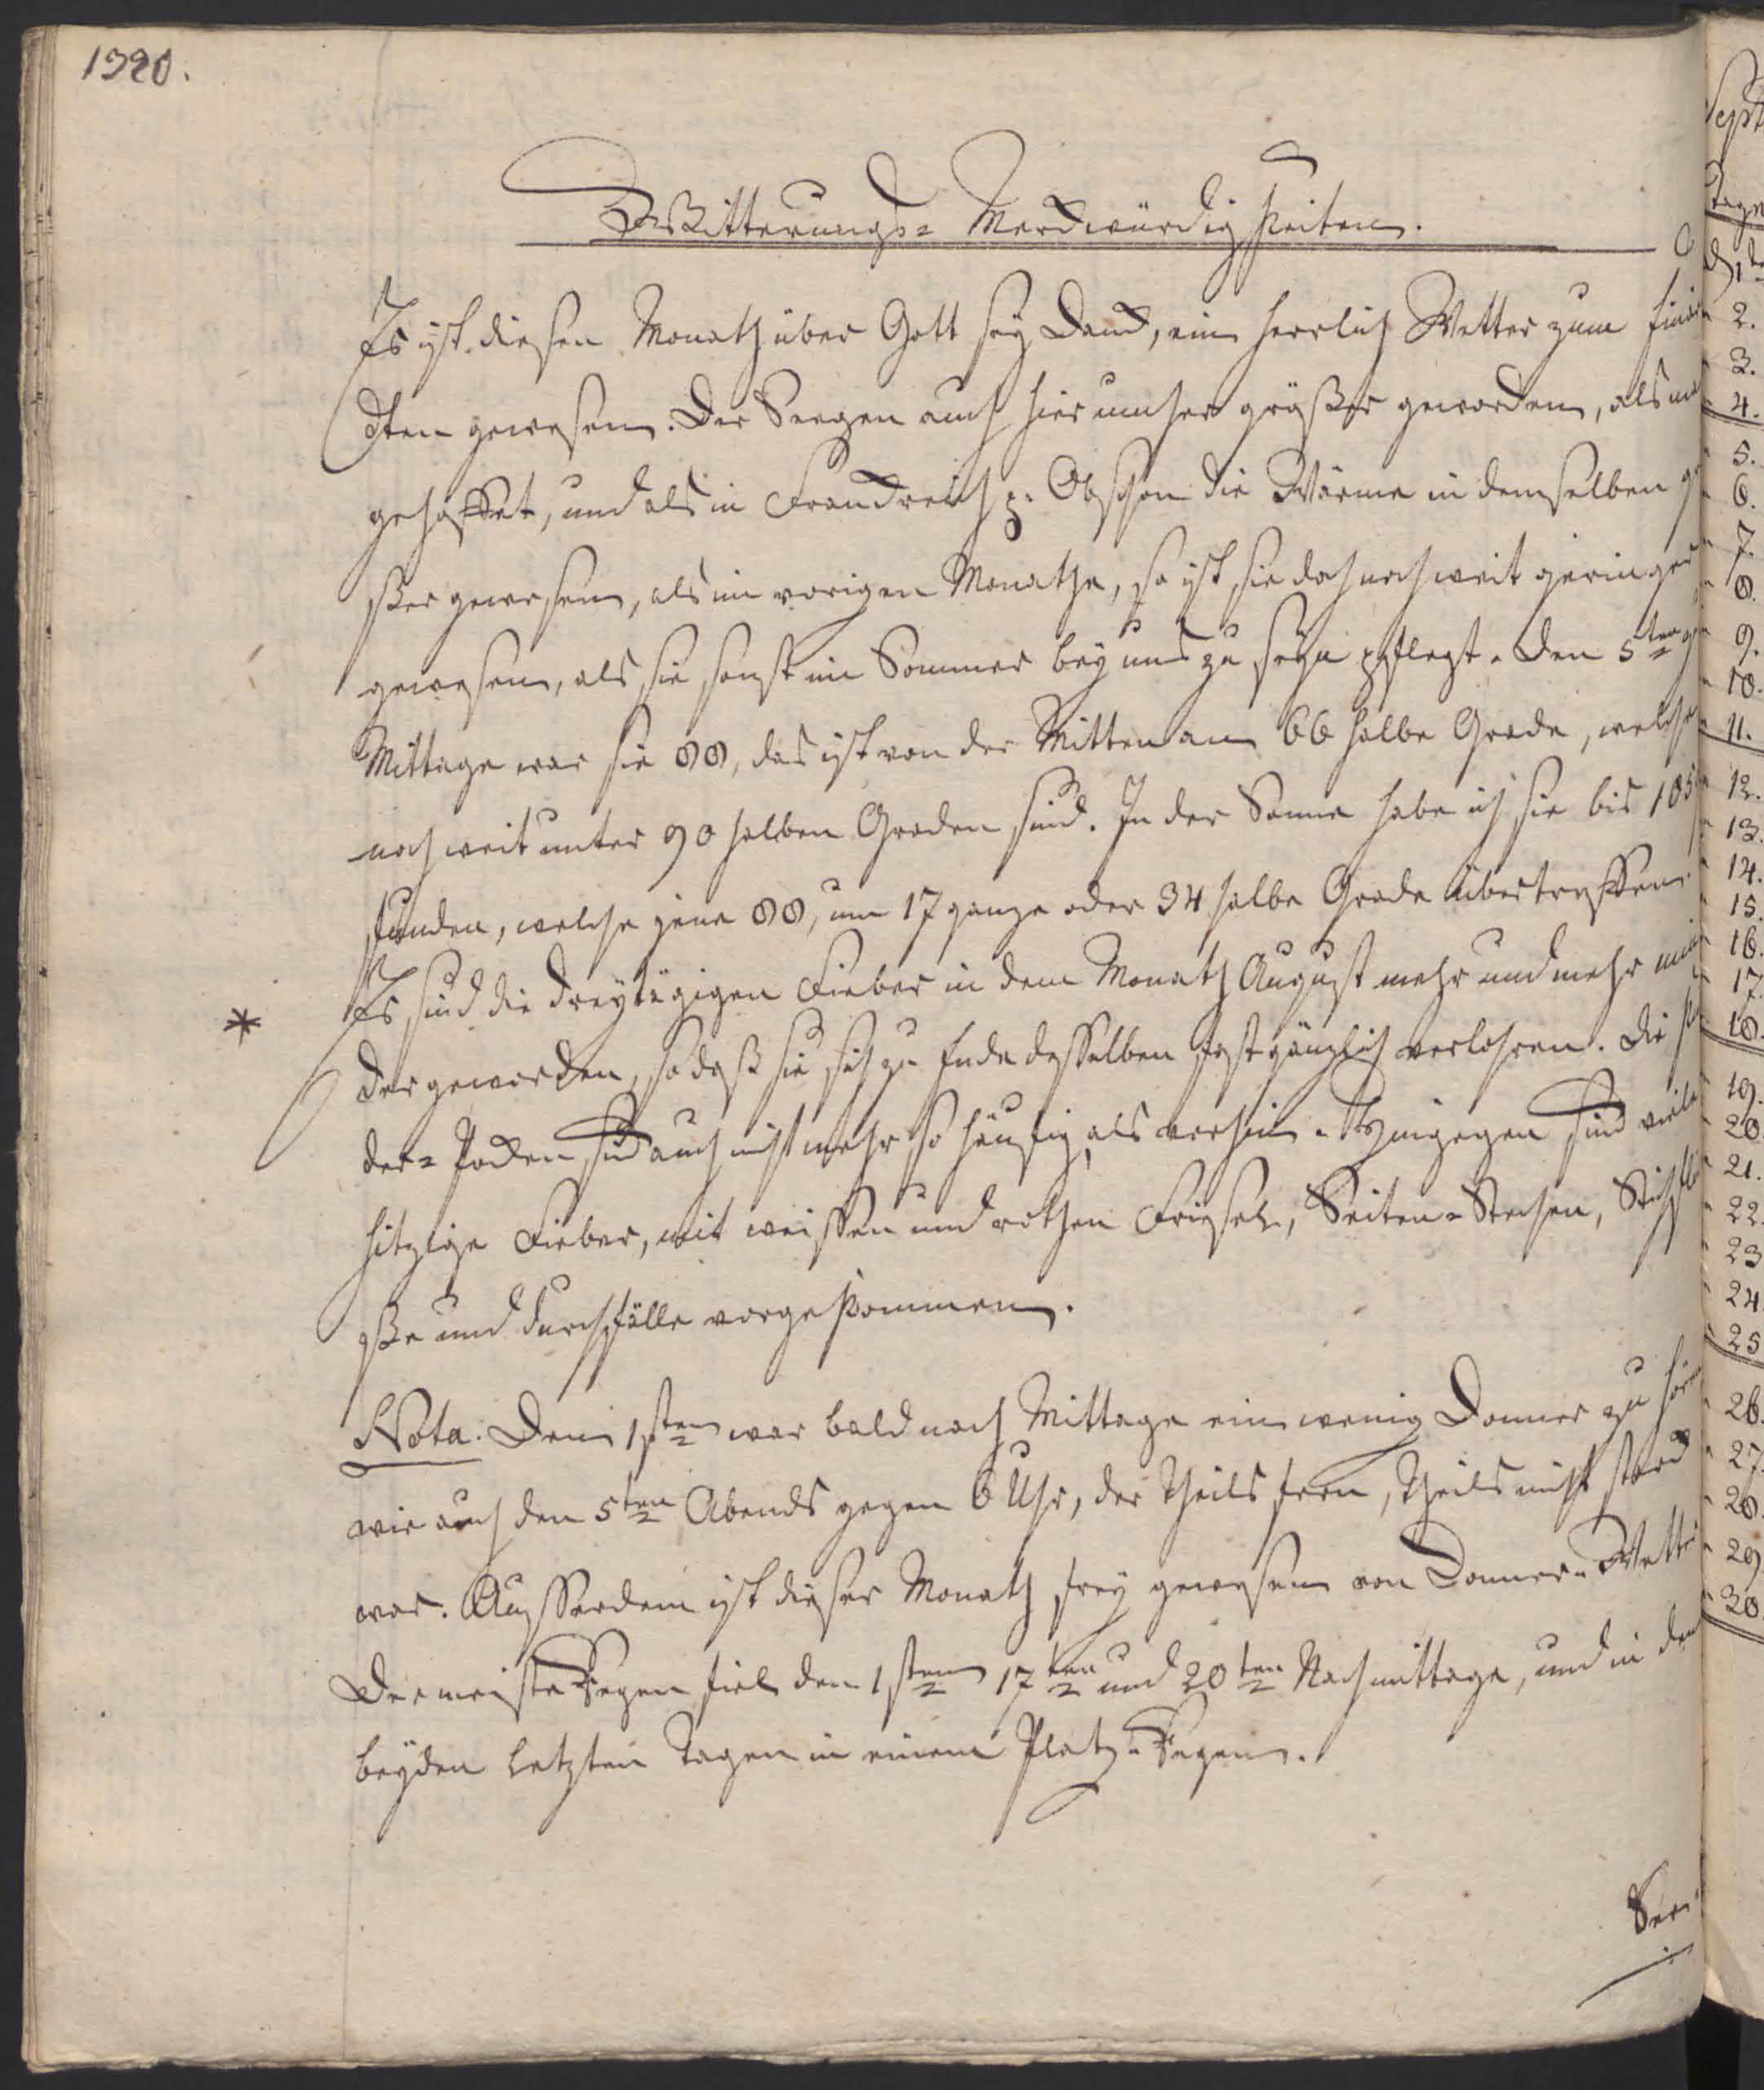 1320.
Witterungs- Merckwürdigkeiten.
Es ist diesen Monath über Gott sey Danck, ein herrlich Wetter zum
dten gewesen. Der Seegen auch hier umher größer geworden, als
gehoffet, und als in Franckreich p. Obschon die Wärme in demselben
ßer gewesen, als im vorigen Monathe, so ist sie doch noch weit geringer
gewesen, als sie sonst im Sommer bey uns zu seyn pflegt. Den 5ten
Mittage war sie 88, das ist von der Mitten an 66 halbe Grade, welche
noch weit unter 90 halben Graden sind. In der Sonne habe ich sie bis 105
funden, welche jene 88, um 17 ganze oder 34 halbe Grade übertreffen.
* Es sind die dreytägigen Fieber in dem Monath August mehr und mehr min
der geworden, so daß sie sich zu Ende desselben fast gänzlich verlohren. Die
der- Pocken sind auch nicht mehr so häufig, als vorhin. Hingegen sind viele
hitzige Fieber, mit weissen und rothen Friesel, Seiten-Stechen, Stickflü
ße und Durchfälle vorgekommen.
Nota: Den 1sten war bald nach Mittage ein wenig Donner zu hören
wie auch den 5ten Abends gegen 6 Uhr, der theils fern, theils nicht starck
war. Ausserdem ist dieser Monath frey gewesen von Donner-Wetter
Der meiste Regen fiel den 1sten 17ten und 20ten Nachmittage, und in den
beyden letzten Tagen in einem Platz-Regen.
Sept
Tage
1
2.
3.
4.
5.
6.
7.
8.
9.
10.
11.
12.
13.
14.
15.
16.
17.
18.
19.
20.
21.
22.
23
24
25
26.
27.
28.
29.
30.